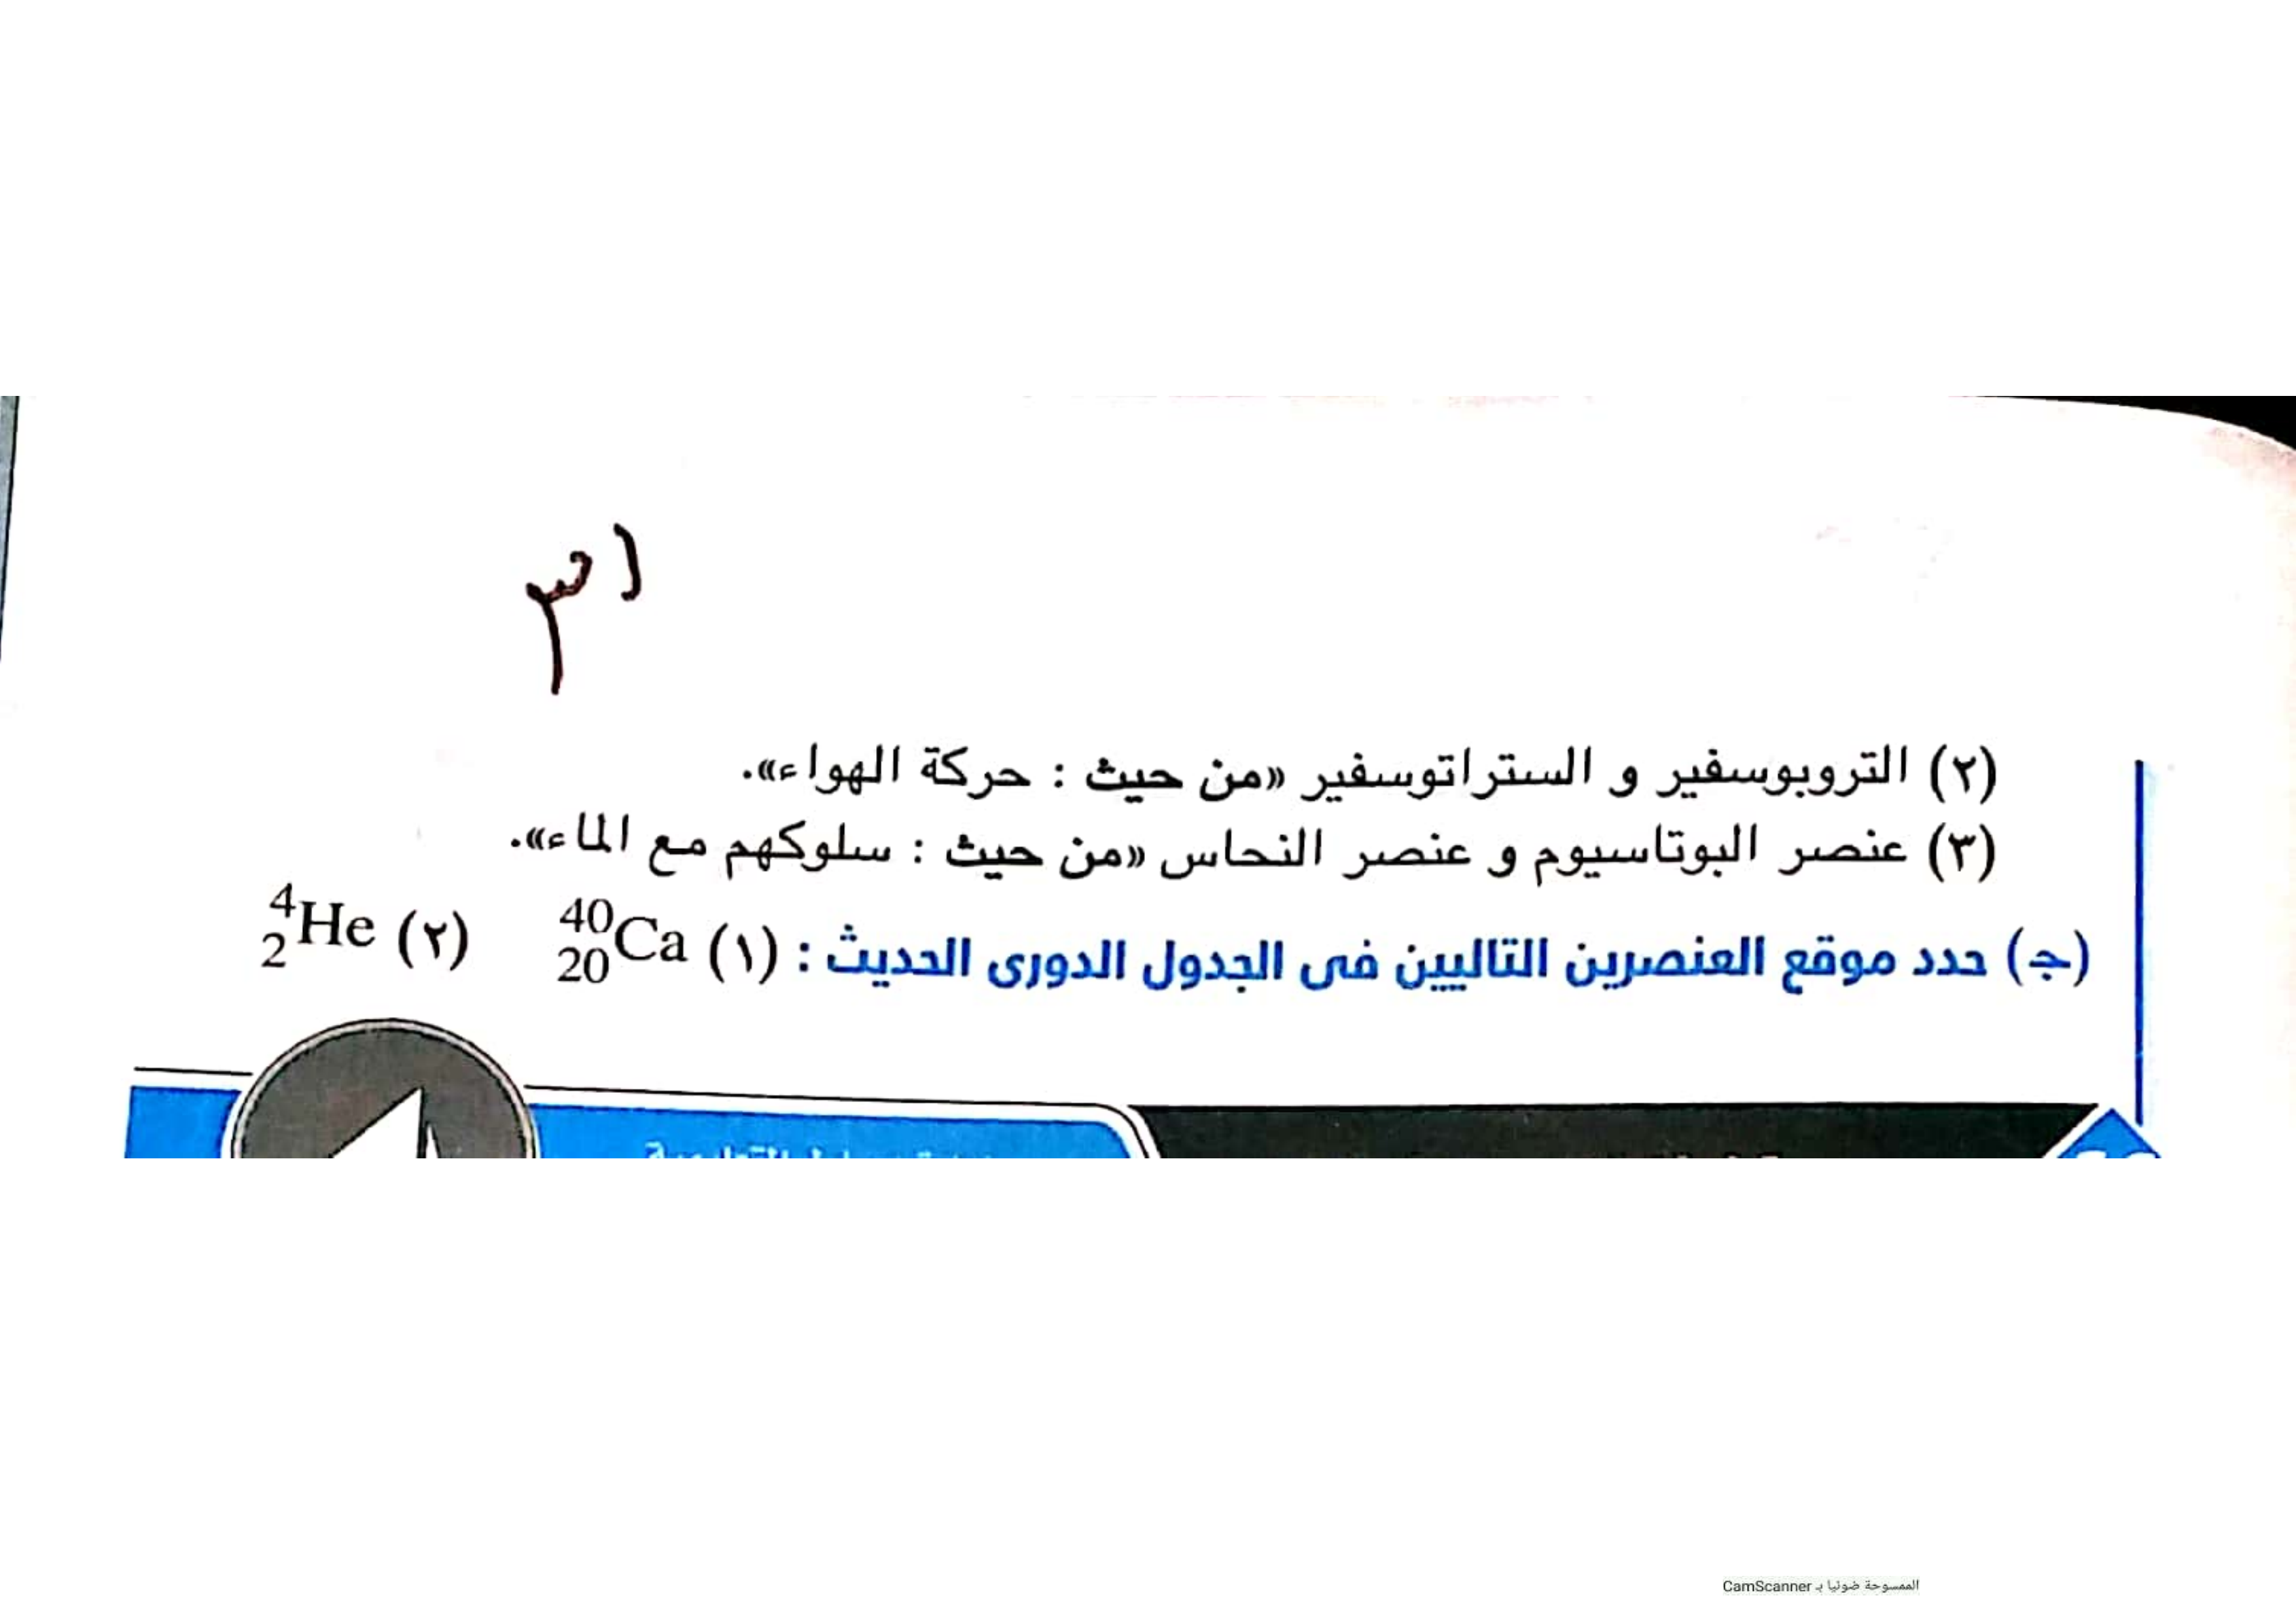 ٣١
(٢) التروبوسفير و الستراتوسفير «من حيث : حركة الهواء».
(٣) عنصر البوتاسيوم و عنصر النحاس «من حيث : سلوكهم مع الماء».
(جـ) حدد موقع العنصرين التاليين فى الجدول الدورى الحديث : (١) ⁴⁰₂₀Ca (٢) ⁴₂He
الممسوحة ضوئيا بـ CamScanner